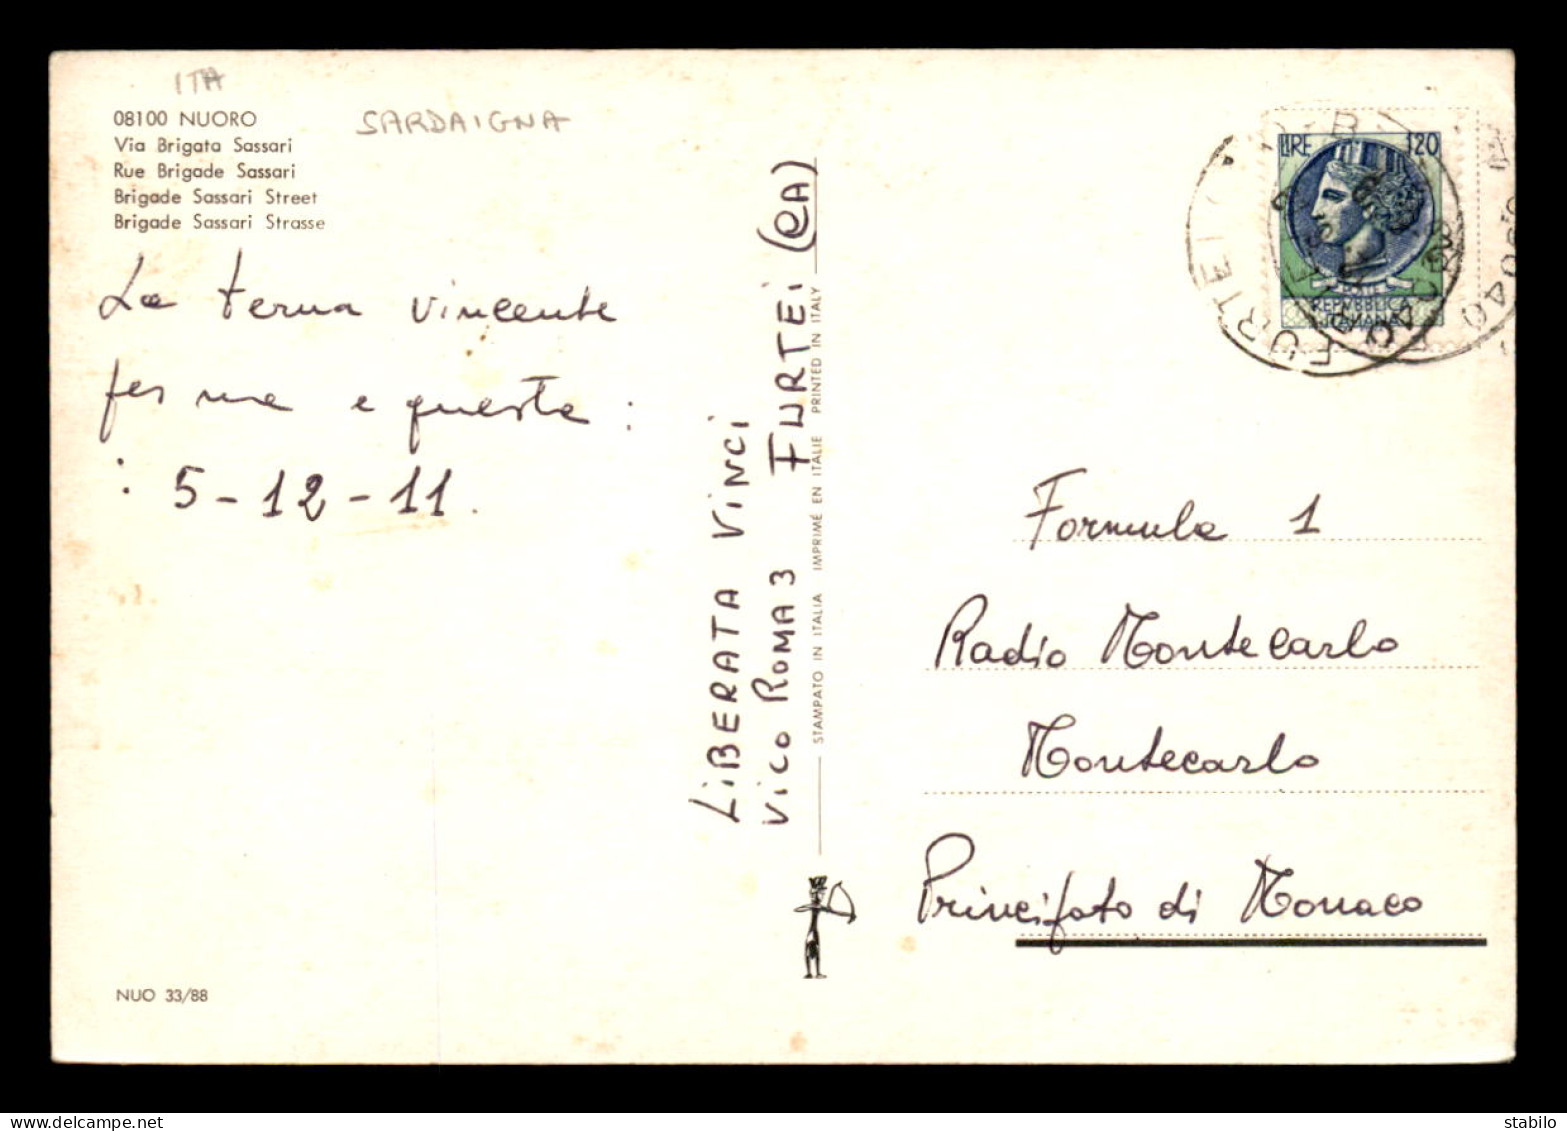 ITA
08100 NUORO
SARDAIGNA
Via Brigata Sassari
Rue Brigade Sassari
Brigade Sassari Street
Brigade Sassari Strasse
La terna vincente
per me e questa :
: 5-12-11.
NUO 33/88
LiBERATA ViNCi
Vico ROMA 3 FURTEi (CA)
STAMPATO IN ITALIA IMPRIMÉ EN ITALIE PRINTED IN ITALY
LIRE 120
REPVBBLICA
ITALIANA
FURTEI
Formula 1
Radio Montecarlo
Montecarlo
Principato di Monaco
delcampe.net
stabilo